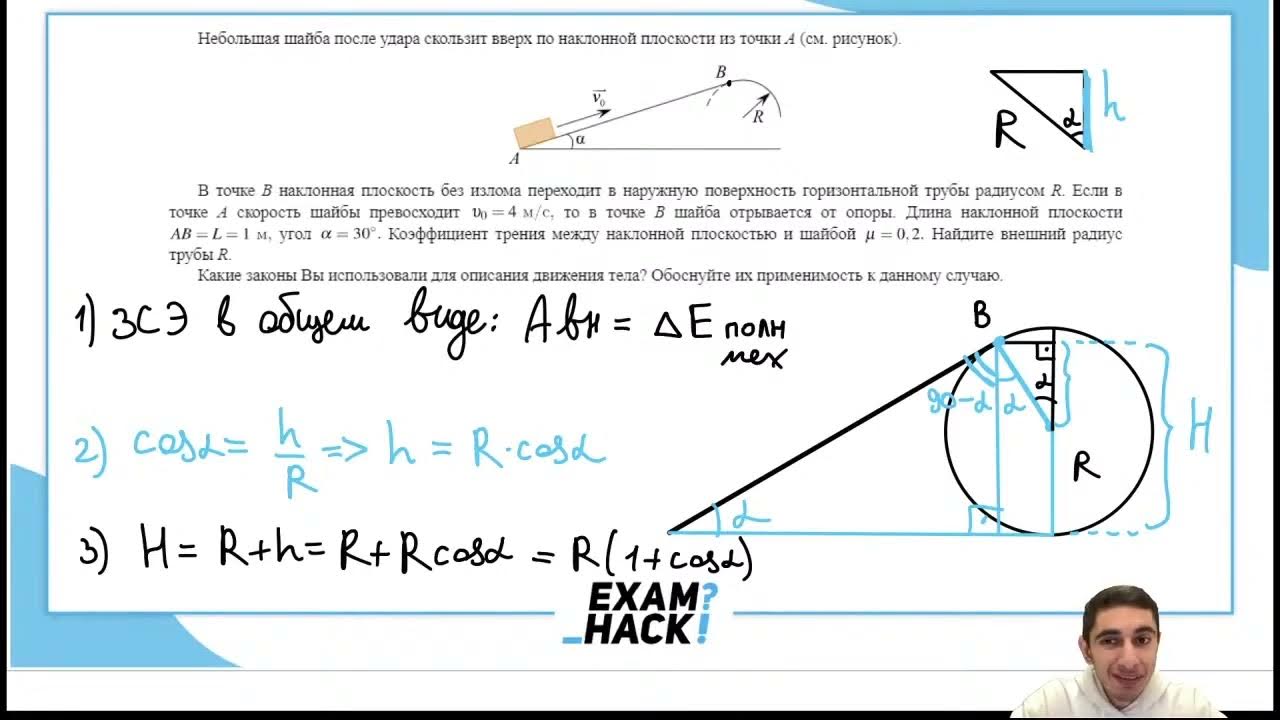 Небольшая шайба после удара скользит вверх по наклонной плоскости из точки A (см. рисунок).
B
v₀
R
α
A
R
α
h
В точке B наклонная плоскость без излома переходит в наружную поверхность горизонтальной трубы радиусом R. Если в
точке A скорость шайбы превосходит υ₀ = 4 м/с, то в точке B шайба отрывается от опоры. Длина наклонной плоскости
AB = L = 1 м, угол α = 30°. Коэффициент трения между наклонной плоскостью и шайбой μ = 0,2. Найдите внешний радиус
трубы R.
Какие законы Вы использовали для описания движения тела? Обоснуйте их применимость к данному случаю.
1) ЗСЭ в общем виде: Aвн = ΔE полн
мех
B
α
90-α α
H
R
α
2) cosα = h/R => h = R·cosα
3) H = R+h = R+Rcosα = R(1+cosα)
EXAM?
_HACK!